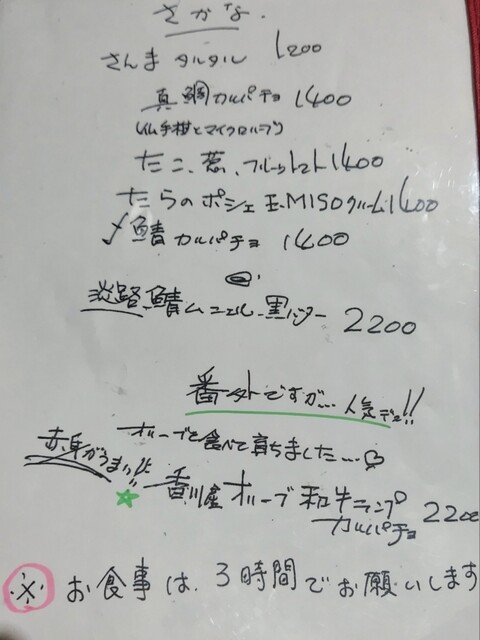 さかな.
さんま タルタル 1200
真鯛カルパチョ 1400
(仏手柑とマイクロハーブ)
たこ、葱、フルーツトマト 1400
たらのポシェ 玉MISOクリーム 1400
鯖 カルパチョ 1400
淡路鯖ムニエル 黒バター 2200
番外ですが… 人気デス!!
オリーブを食べて育ちました…
赤身がうまいよ!!
☆ 香川産 オリーブ 和牛ランプ
カルパチョ 2200
※ お食事は、3時間でお願いします